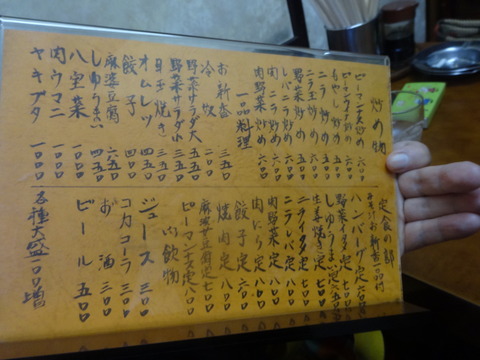 炒め物
ピーマン玉炒め 六〇〇
もやし炒め 五〇〇
ニラ玉炒め 五〇〇
野菜炒め 五〇〇
レバニラ炒め 六〇〇
肉ニラ炒め 六〇〇
肉野菜炒め 六〇〇
一品料理
お新香 三五〇
冷奴
野菜サラダ大 五五〇
野菜サラダ小 三五〇
玉子焼き
オムレツ
餃子 四〇〇
麻婆豆腐 六五〇
しゅうまい 四五〇
八宝菜 一〇〇〇
肉ウマニ 一〇〇〇
ヤキブタ 一〇〇〇
定食の部
みそ汁お新香一品付
ハンバーグ定
野菜イタメ定 七〇〇
しゅうまい定
生姜焼き定
ニライタメ定 七〇〇
ニラレバ定 八〇〇
肉野菜定 八〇〇
肉にら定 八〇〇
餃子定 六〇〇
焼肉定 八〇〇
麻婆豆腐定 七〇〇
ピーマン玉定 八〇〇
御飲物
ジュース 三〇〇
コカコーラ 三〇〇
お酒 三〇〇
ビール 五〇〇
各種大盛 一〇〇増